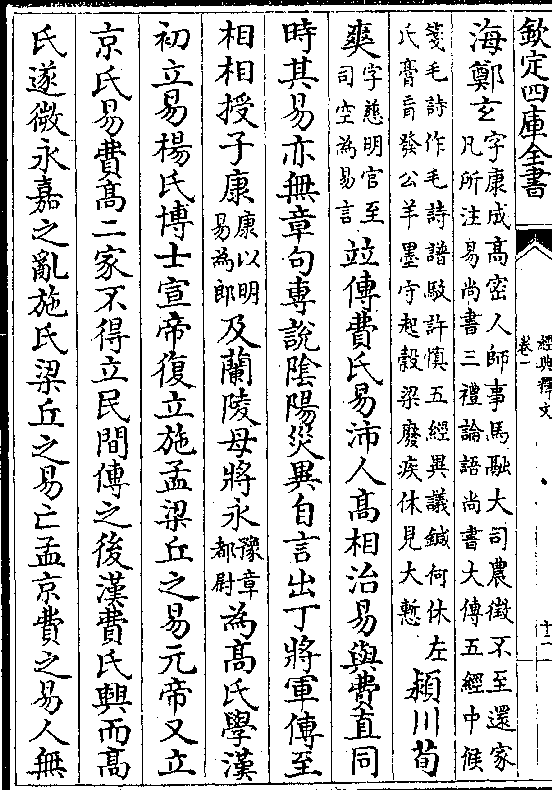 欽定四庫全書
經典釋文
卷一
十二
海鄭玄字康成高密人師事馬融大司農徵不至還家凡所注易尚書三禮論語尚書大傳五經中候
箋毛詩作毛詩譜駮許慎五經異議鍼何休左氏膏肓發公羊墨守起穀梁廢疾休見大慙潁川荀
爽字慈明官至司空為易言竝傳費氏易沛人高相治易與費直同
時其易亦無章句專說隂陽災異自言出丁將軍傳至
相相授子康康以明易為郎及蘭陵母將永豫章都尉為高氏學漢
初立易楊氏博士宣帝復立施孟梁丘之易元帝又立
京氏易費高二家不得立民間傳之後漢費氏興而高
氏遂微永嘉之亂施氏梁丘之易亡孟京費之易人無